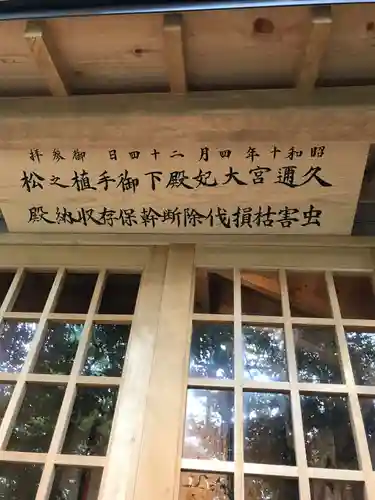 昭和十年四月二十四日 御参拝
久邇宮大妃殿下御手植之松
虫害枯損伐除断幹保存収納殿